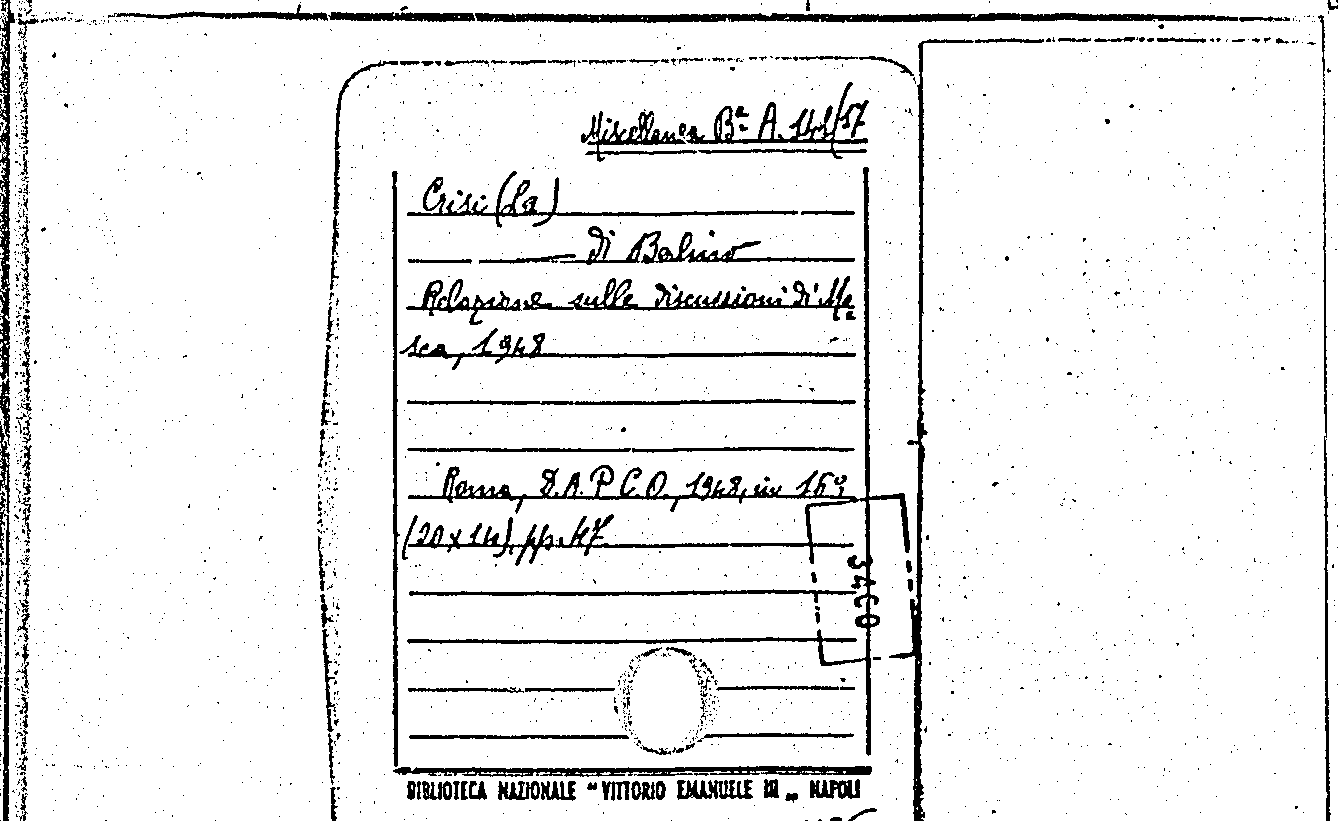 Miscellanea Bª A. 141/57
Crisi (La)
—— di Berlino
Relazione sulle discussioni di Mo
sca, 1948
Roma, S.A.P.C.O., 1948, in 16º,
(20x14), pp. 47
34CO
BIBLIOTECA NAZIONALE "VITTORIO EMANUELE III" NAPOLI